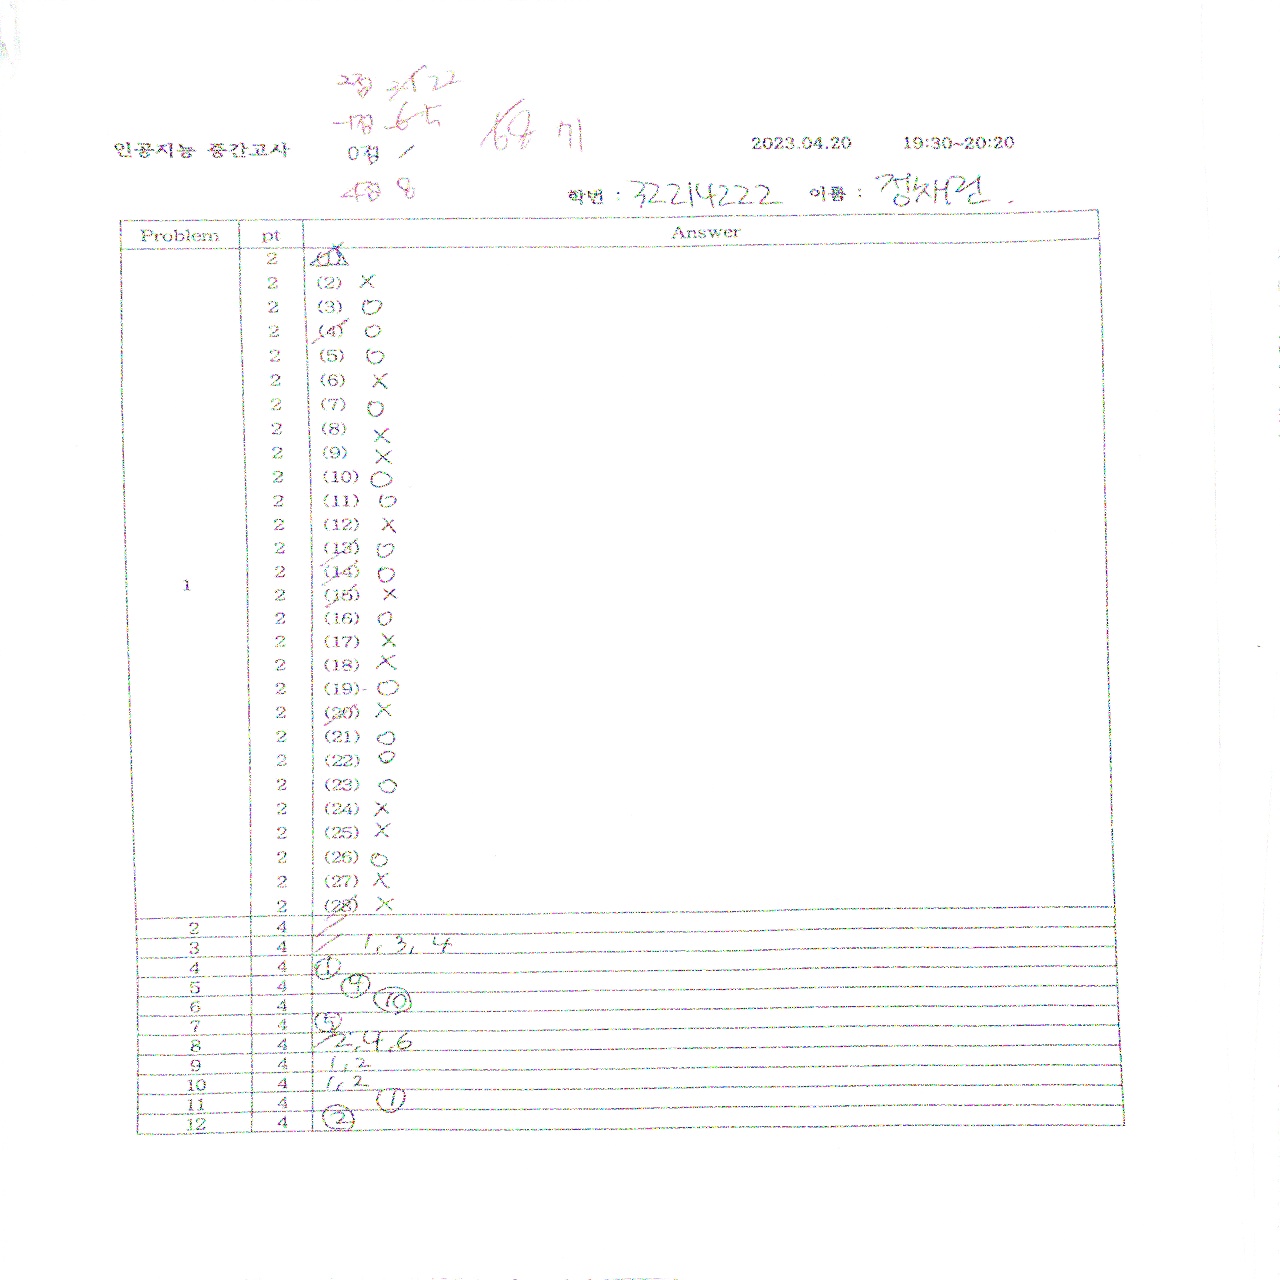 2점 22
-1점 5
71
인공지능 중간고사 0점 / 2023.04.20 19:30~20:20
4점 8
학번 : 32214222 이름 : 정채련
Problem pt Answer
2
2 (2) X
2 (3) O
2 (4) O
2 (5) O
2 (6) X
2 (7) O
2 (8) X
2 (9) X
2 (10) O
2 (11) O
2 (12) X
2 (13) O
2 (14) O
1
2 (15) X
2 (16) O
2 (17) X
2 (18) X
2 (19) O
2 (20) X
2 (21) O
2 (22) O
2 (23) O
2 (24) X
2 (25) X
2 (26) O
2 (27) X
2 (28) X
2 4
3 4 1, 3, 4
4 4 ①
5 4 ④
6 4 ⑩
7 4 ⑤
8 4 2, 4, 6
9 4 1, 2
10 4 1, 2
11 4 ①
12 4 ②